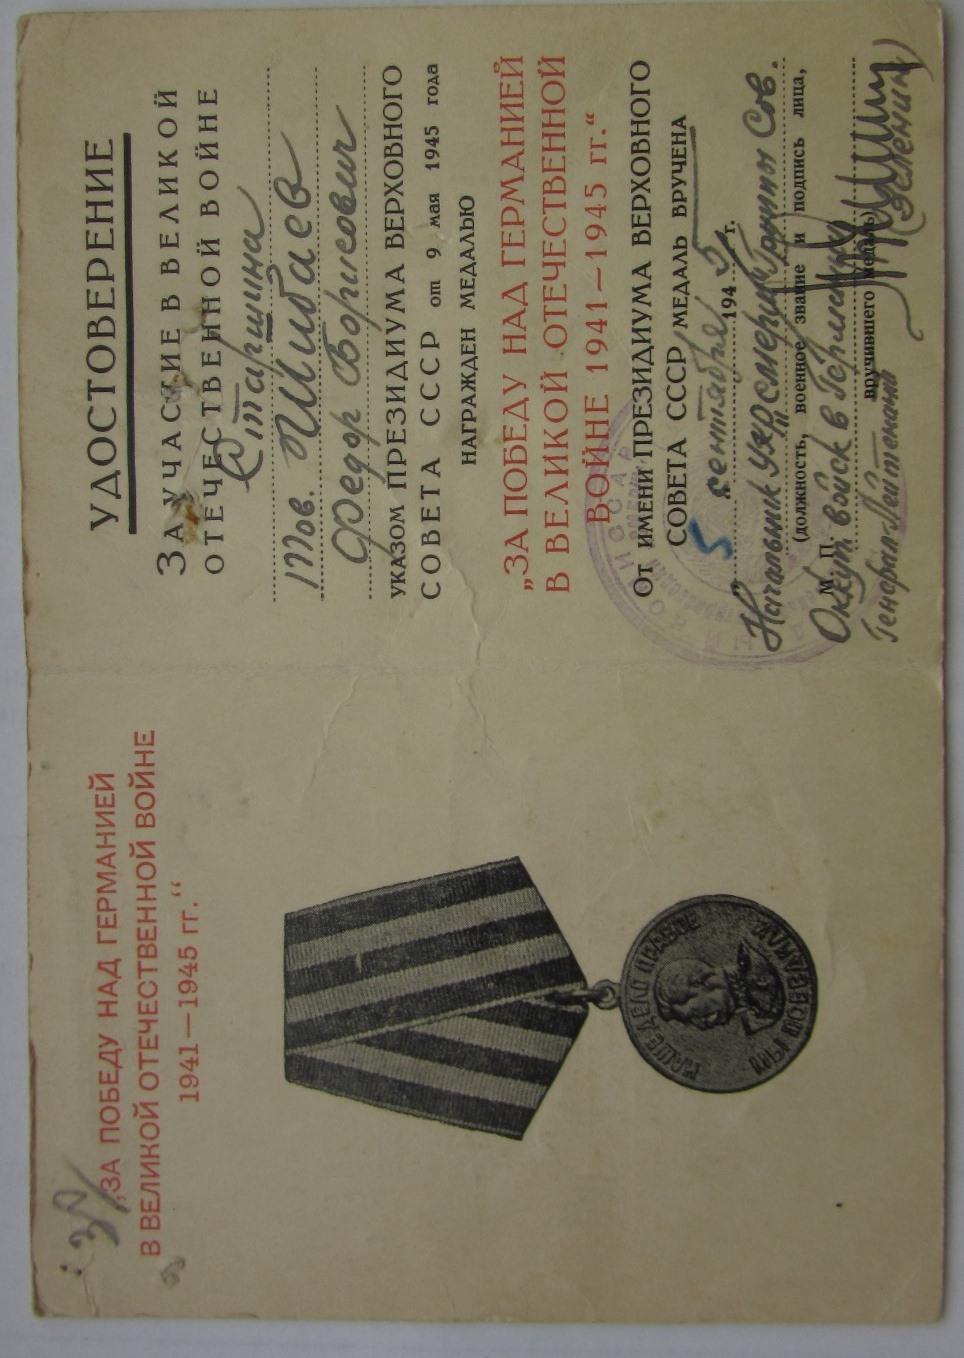 „ЗА ПОБЕДУ НАД ГЕРМАНИЕЙ
В ВЕЛИКОЙ ОТЕЧЕСТВЕННОЙ ВОЙНЕ
1941—1945 гг.“
НАШЕ ДЕЛО ПРАВОЕ
МЫ ПОБЕДИЛИ
УДОСТОВЕРЕНИЕ
ЗА УЧАСТИЕ В ВЕЛИКОЙ
ОТЕЧЕСТВЕННОЙ ВОЙНЕ
Старшина
тов. Шибаев
Федор Борисович
УКАЗОМ ПРЕЗИДИУМА ВЕРХОВНОГО
СОВЕТА СССР от 9 мая 1945 года
НАГРАЖДЕН МЕДАЛЬЮ
„ЗА ПОБЕДУ НАД ГЕРМАНИЕЙ
В ВЕЛИКОЙ ОТЕЧЕСТВЕННОЙ
ВОЙНЕ 1941—1945 гг.“
ОТ ИМЕНИ ПРЕЗИДИУМА ВЕРХОВНОГО
СОВЕТА СССР МЕДАЛЬ ВРУЧЕНА
„5“ сентября 1945 г.
Начальник Сов.
(должность, военное звание и подпись лица,
М. П.
Оккуп. войск в Германии
вручившего медаль)
Генерал-Лейтенант